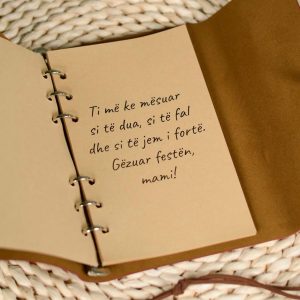 Ti më ke mësuar
si të dua, si të fal
dhe si të jem i fortë.
Gëzuar festën,
mami!